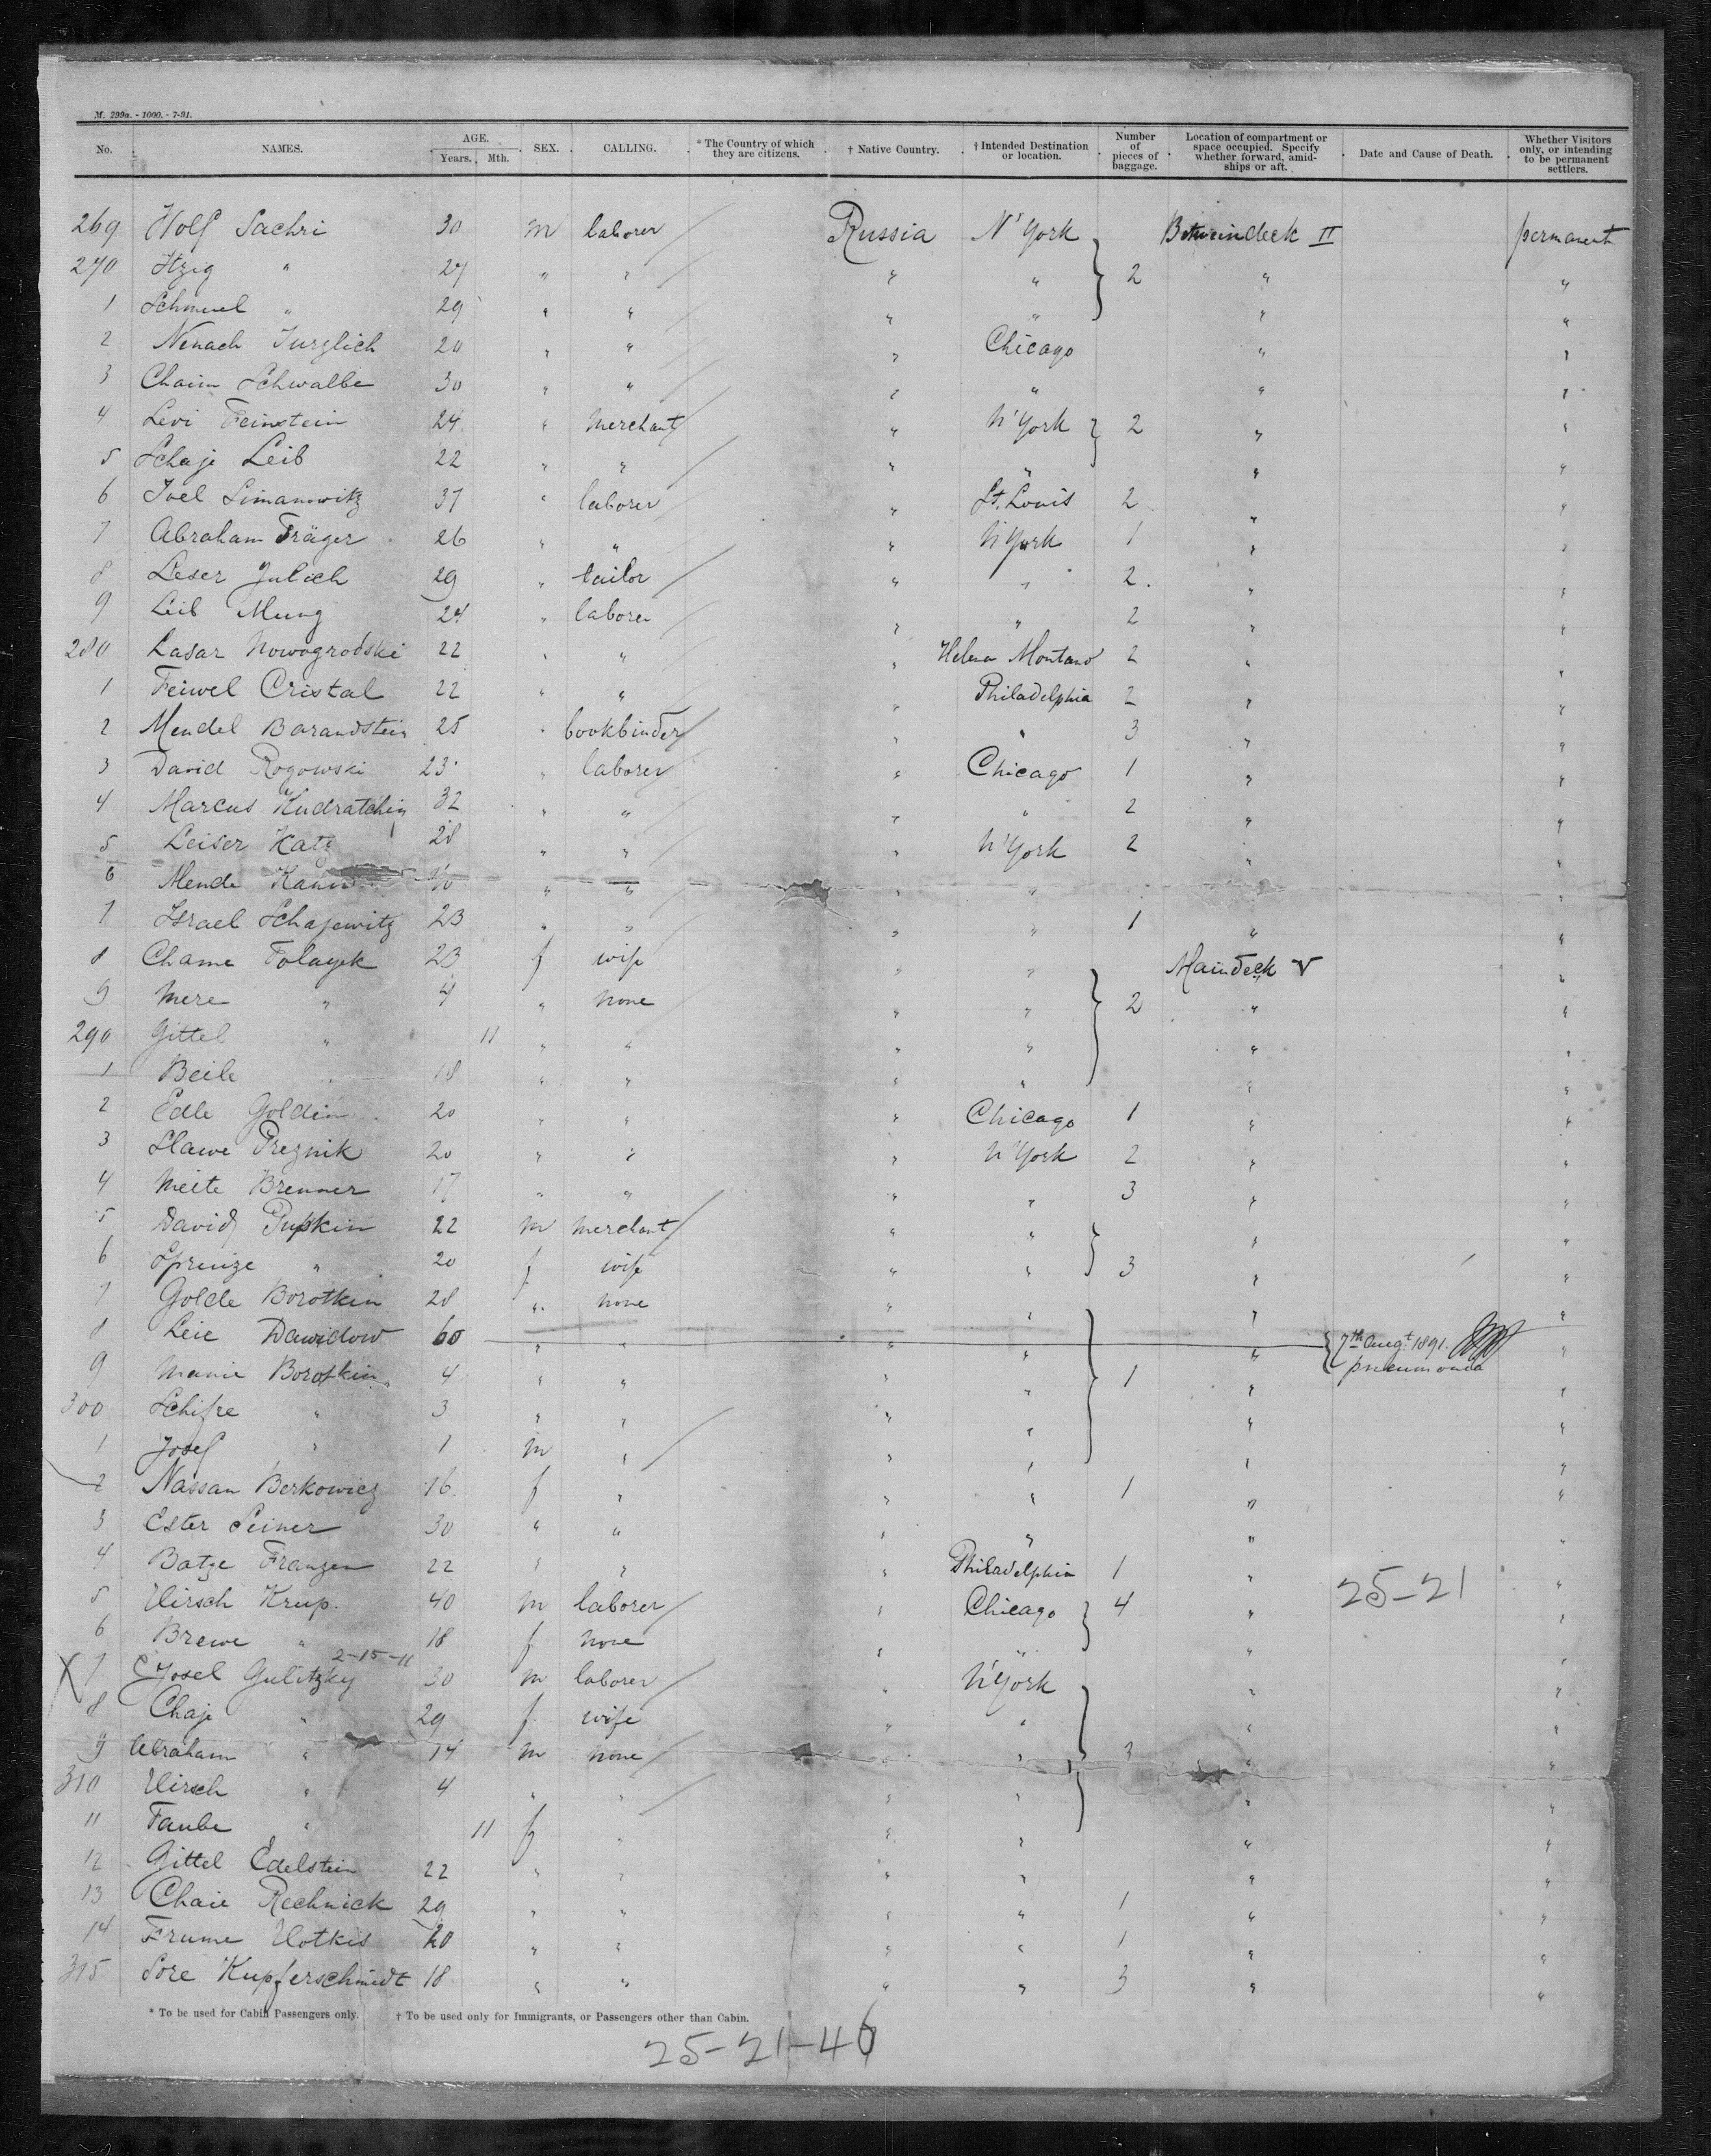 M. 299a. - 1000. - 7-91.
No. NAMES. AGE. Years. Mth. SEX. CALLING. * The Country of which they are citizens. † Native Country. † Intended Destination or location. Number of pieces of baggage. Location of compartment or space occupied. Specify whether forward, amidships or aft. Date and Cause of Death. Whether Visitors only, or intending to be permanent settlers.
269 Wolf Sachri 30 m laborer Russia N'York Betweindeck II permanent
270 Itzig " 27 " " " " 2 " "
1 Schmuel " 29 " " " " " "
2 Nenach 20 " " " Chicago " "
3 Chaim Schwalbe 30 " " " " " "
4 Levi Feinstein 24 " merchant " N'York 2 " "
5 Schaje Leib 22 " " " " " "
6 Joel Simanowitz 37 " laborer " St. Louis 2 " "
7 Abraham Träger 26 " " " N'York 1 " "
8 Leser Julich 29 " tailor " " 2 " "
9 Leib Mung 24 " laborer " " 2 " "
280 Lasar Nowogrodski 22 " " " Helena Montano 2 " "
1 Feiwel Cristal 22 " " " Philadelphia 2 " "
2 Mendel Barandstein 25 " bookbinder " " 3 " "
3 David Rogowski 23 " laborer " Chicago 1 " "
4 Marcus Kudratchin 32 " " " " 2 " "
5 Leiser Katz 28 " " " N'York 2 " "
6 Mende " " " " " "
7 Israel Schajewitz 23 " " " " 1 " "
8 Chame Tolayek 23 f wife " " Maindeck V "
9 Mere " 4 " none " " 2 " "
290 Gittel " 11 " " " " " "
1 Beile " 18 " " " " " "
2 Edle Goldin 20 " " " Chicago 1 " "
3 Slawe Preznik 20 " " " N'York 2 " "
4 Meite Brenner 17 " " " " 3 " "
5 David Pupkin 22 m merchant " " " "
6 Sprinze " 20 f wife " " 3 " "
7 Golde Borotkin 28 " none " " " "
8 Leie Dawidow 60 " " " " " 7th Augt. 1891. pneumonia "
9 Manie Borotkin 4 " " " " 1 " "
300 Schifre " 3 " " " " " "
1 Josef " 1 m " " " " "
2 Nassan Berkowicz 16 f " " " 1 " "
3 Ester Seiner 30 " " " " " "
4 Batze Franzen 22 " " " Philadelphia 1 " "
5 Hirsch Krup. 40 m laborer " Chicago 4 " 25-21 "
6 Brewe " 18 f none " " " "
2-15-11
X 7 Josel Gulitzky 30 m laborer " N'York " "
8 Chaje " 29 f wife " " " "
9 Abraham " 14 m none " " 3 " "
310 Hirsch " 4 " " " " " "
11 Taube " 11 f " " " " "
12 Gittel Edelstein 22 " " " " " "
13 Chaie Rechnick 29 " " " " 1 " "
14 Frume Hotkis 20 " " " " 1 " "
315 Sore Kupferschmidt 18 " " " " 3 " "
* To be used for Cabin Passengers only. † To be used only for Immigrants, or Passengers other than Cabin.
25-21-46